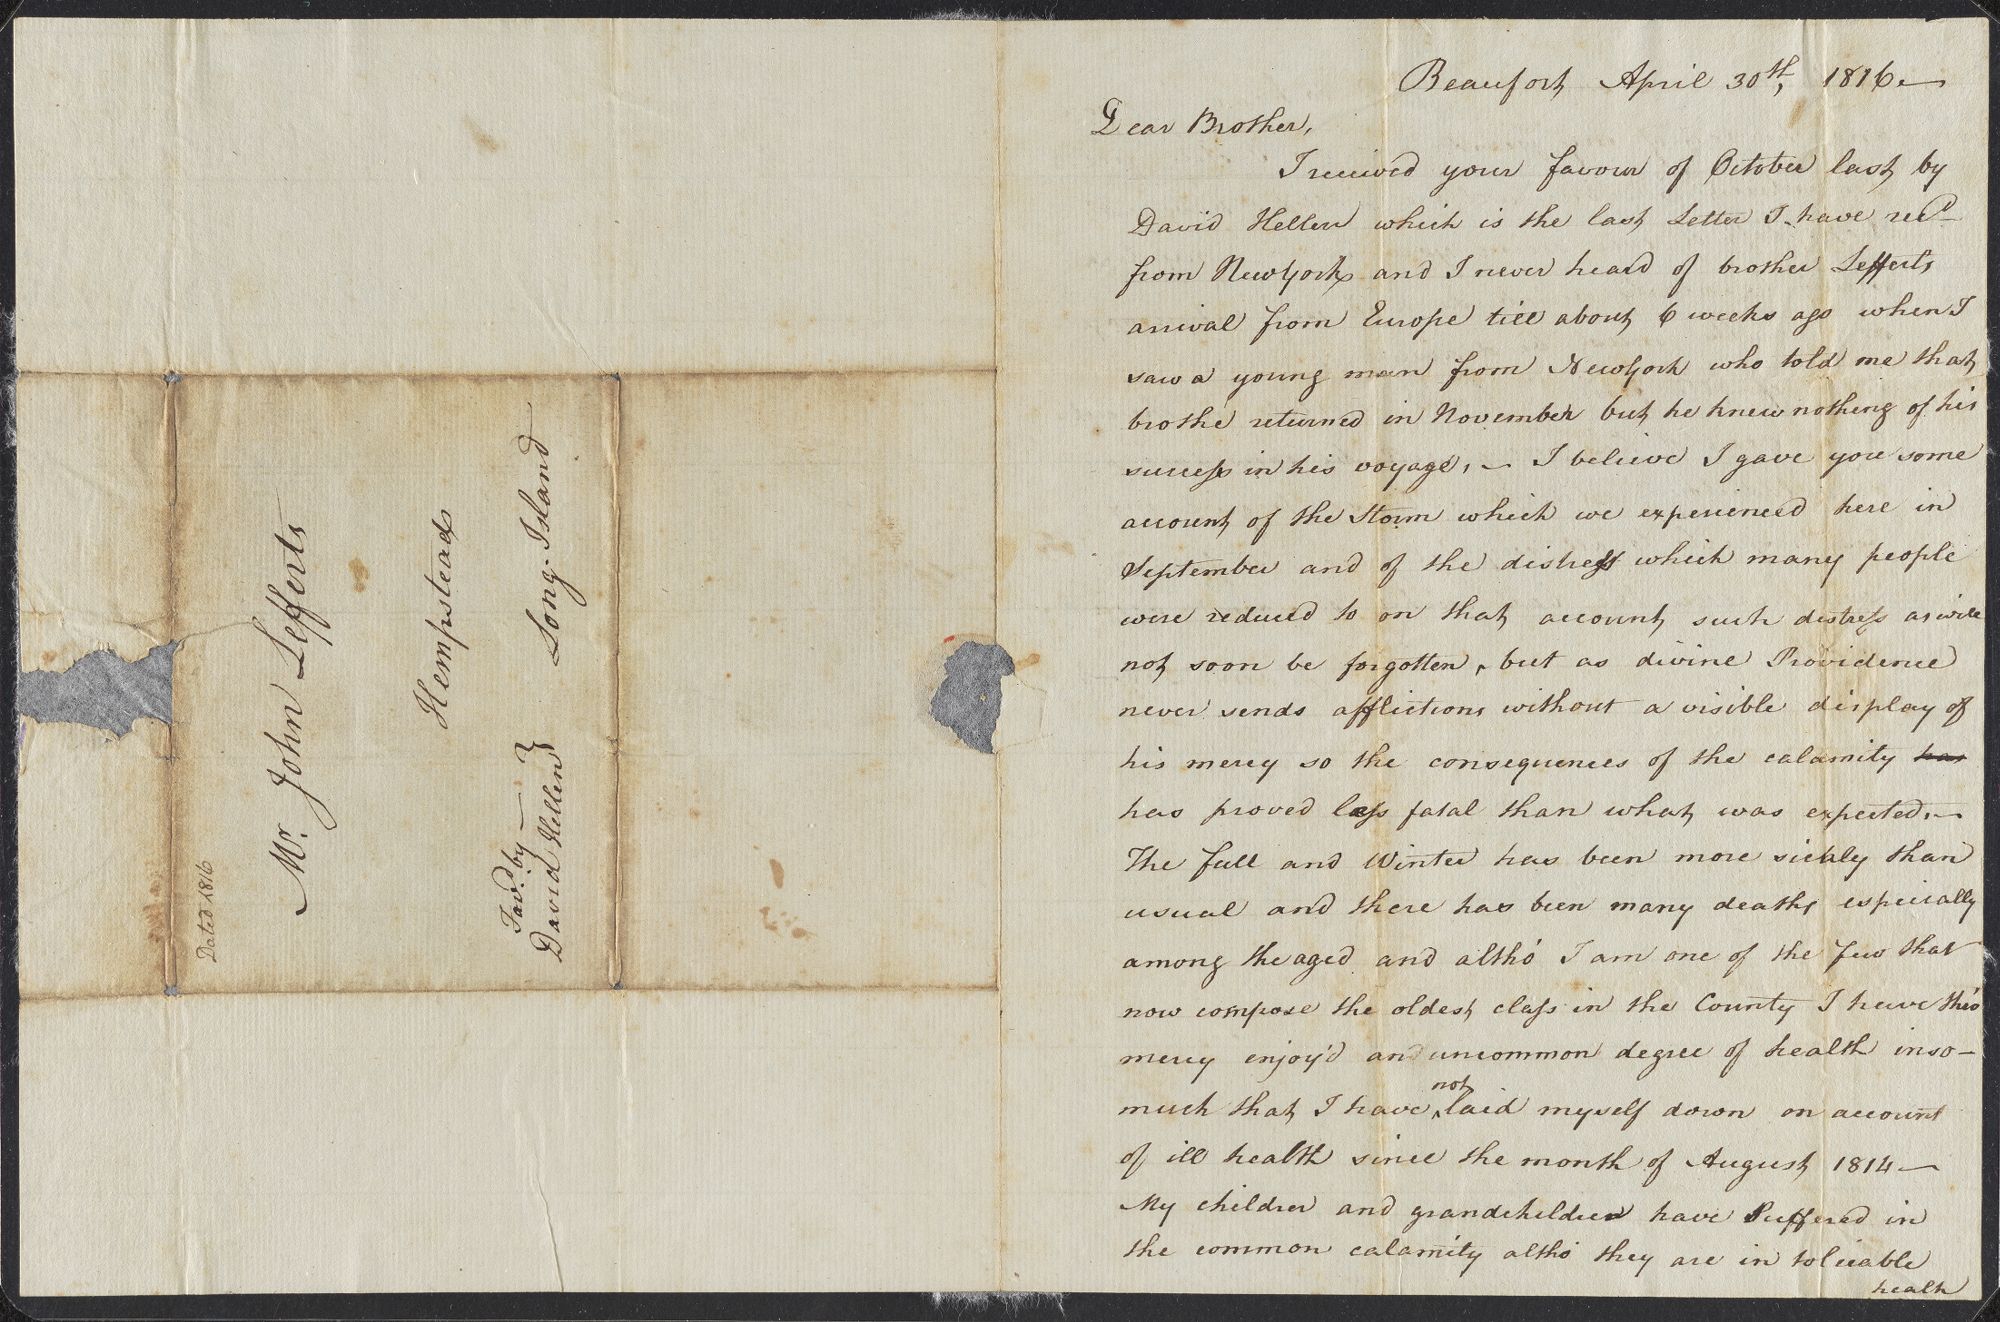 Mr. John Lefferts
Hempstead
Long-Island
Favd. by
David Hellen
Dated 1816
Beaufort April 30th, 1816
Dear Brother,
I received your favour of October last by
David Hellen which is the last Letter I have recd
from NewYork and I never heard of brother Lefferts
arrival from Europe till about 6 weeks ago when I
saw a young man from NewYork who told me that
brothe returned in November but he knew nothing of his
success in his voyage, - I believe I gave you some
account of the Storm which we experienced here in
September and of the distress which many people
were reduced to on that account, such distress as will
not soon be forgotten, but as divine Providence
never sends afflictions without a visible display of
his mercy so the consequences of the calamity has
has proved less fatal than what was expected. -
The fall and Winter has been more sickly than
usual and there has been many deaths especially
among the aged and altho' I am one of the few that
now compose the oldest class in the County I have thro'
mercy enjoy'd an uncommon degree of health inso-
much that I have not laid myself down on account
of ill health since the month of August 1814 -
My children and grandchildren have Suffered in
the common calamity altho' they are in tolerable
health